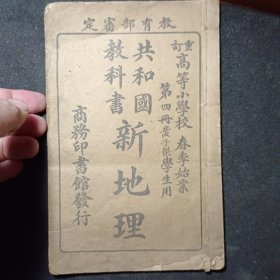 教育部審定
重訂
高等小學校春季始業
第四冊黃子傑學生用
共和國
教科書
新地理
商務印書館發行